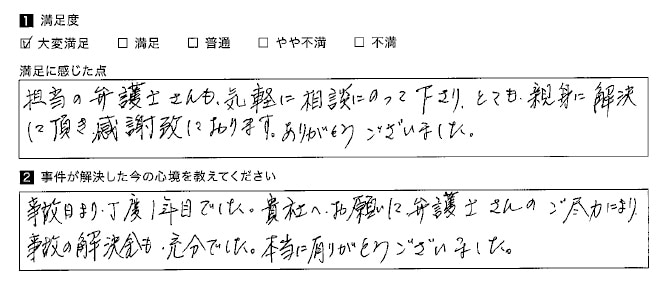 1 満足度
☑ 大変満足 □ 満足 □ 普通 □ やや不満 □ 不満
満足に感じた点
担当の弁護士さんも、気軽に相談にのって下さり、とても、親身に解決
して頂き感謝致しております。ありがとうございました。
2 事件が解決した今の心境を教えてください
事故日より、丁度1年目でした。貴社へ、お願いして、弁護士さんのご尽力により
事故の解決金も、充分でした。本当に有りがとうございました。